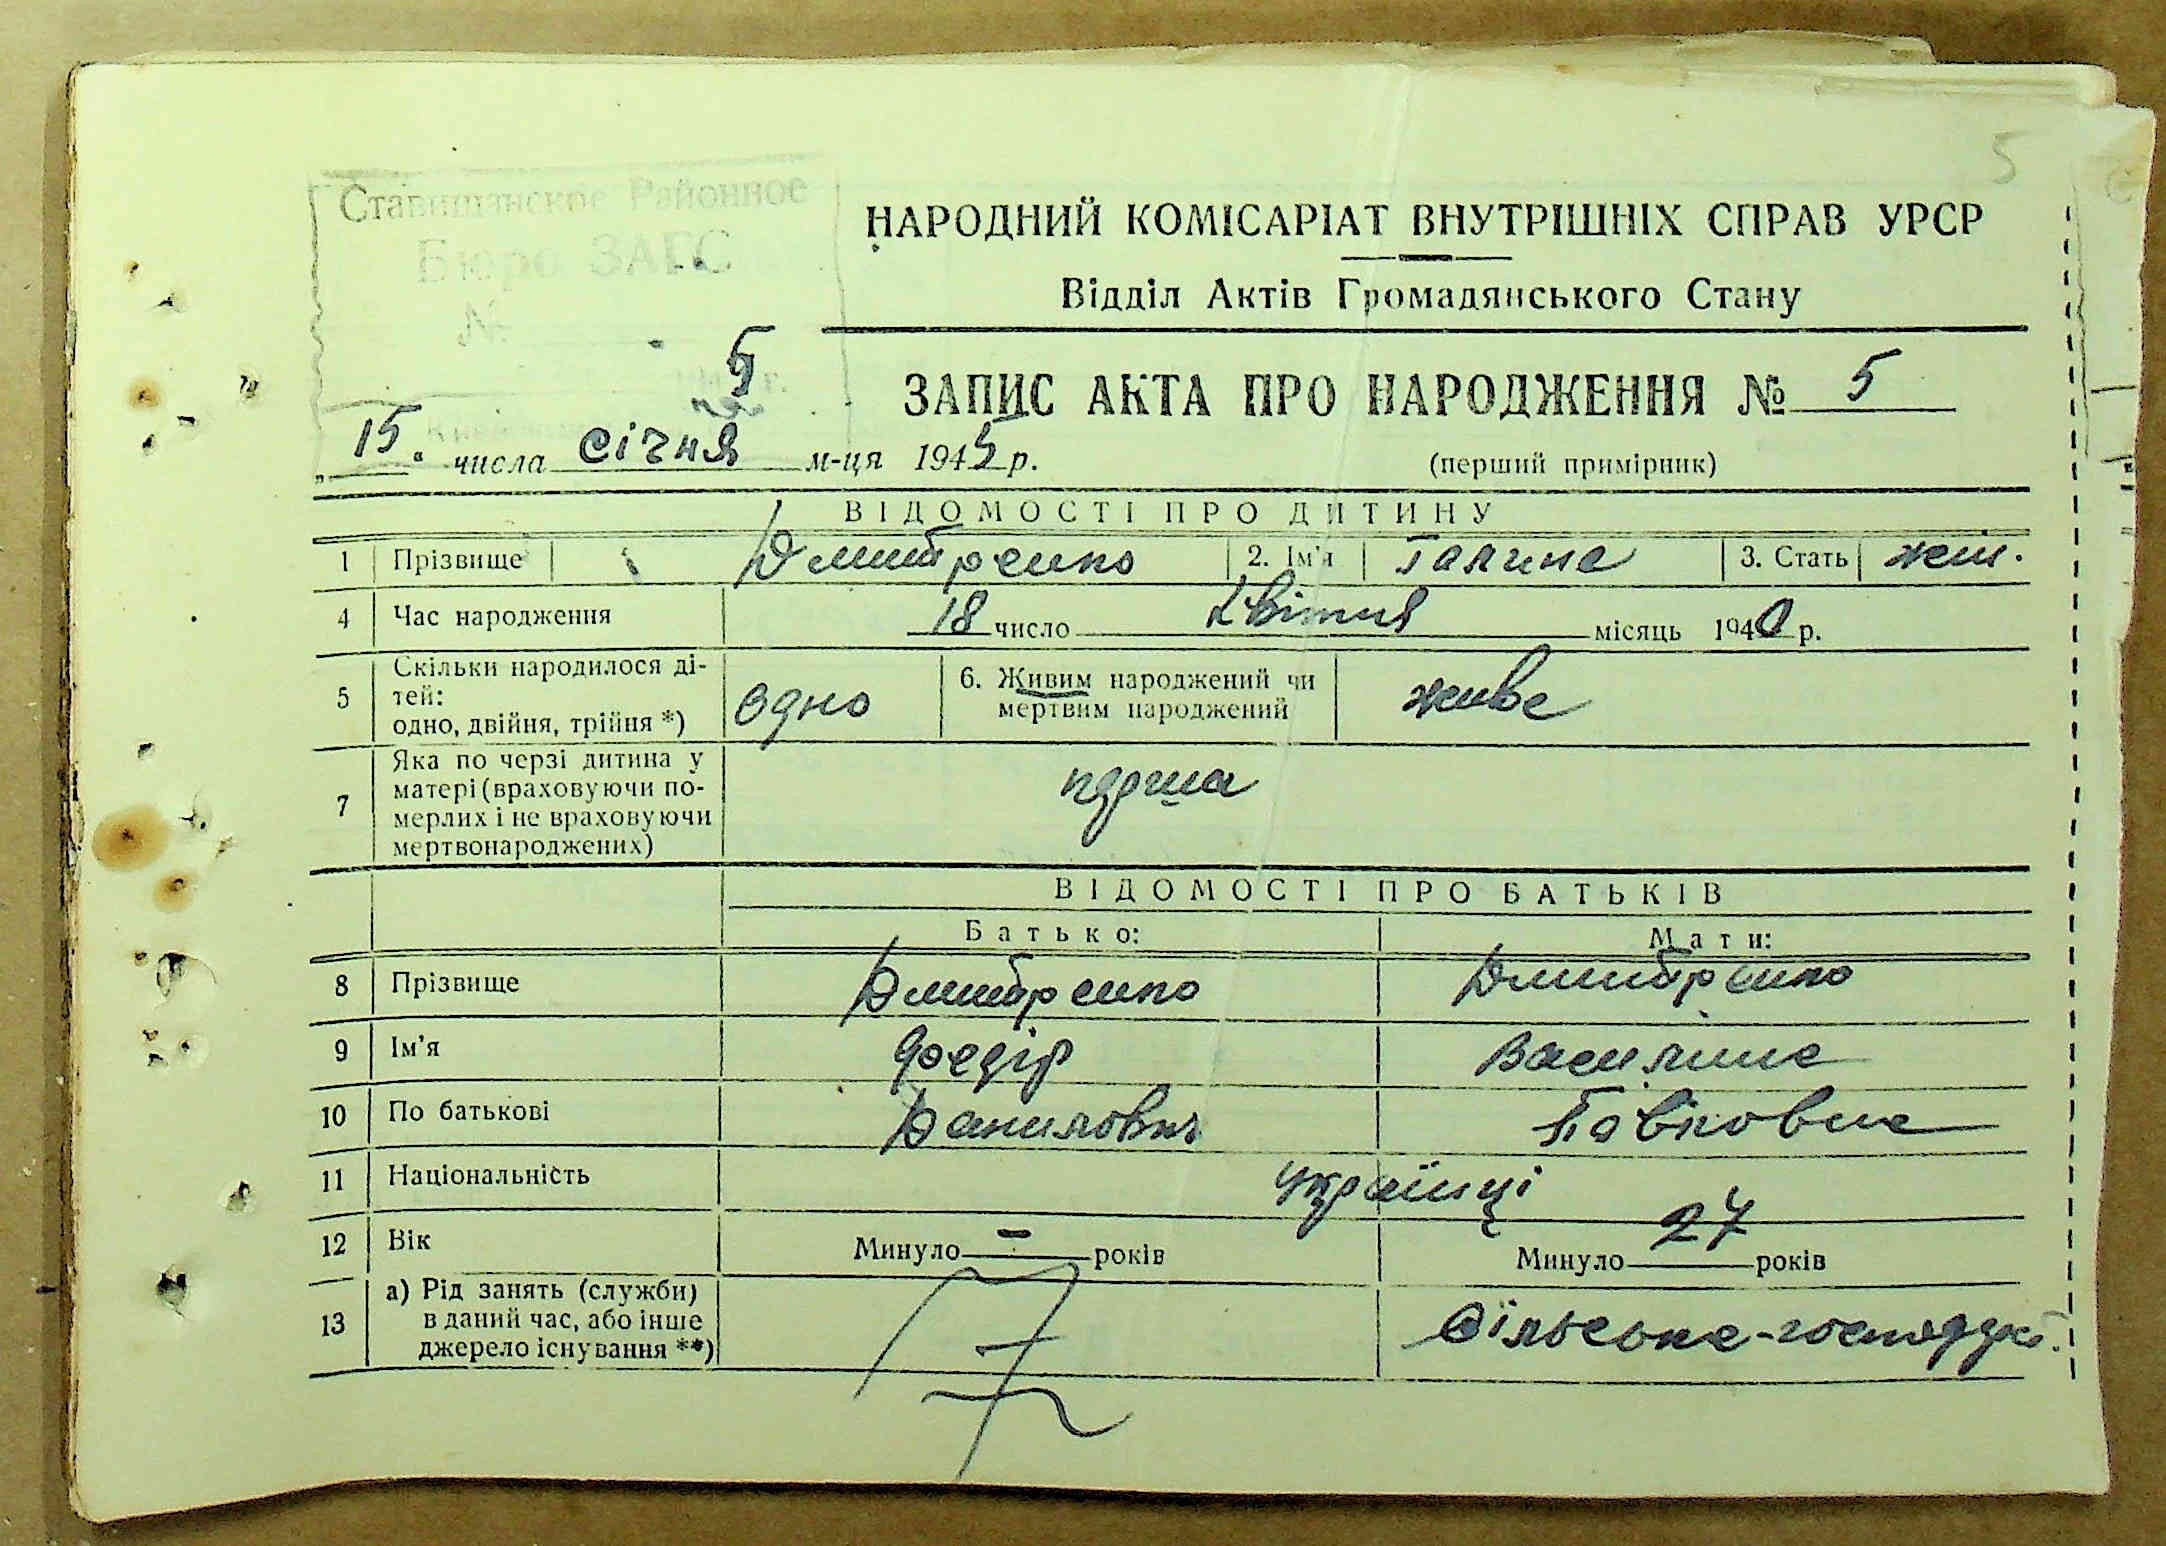 5
Ставищанское Районное
Бюро ЗАГС
№
НАРОДНИЙ КОМІСАРІАТ ВНУТРІШНІХ СПРАВ УРСР
Відділ Актів Громадянського Стану
5 г.
ЗАПИС АКТА ПРО НАРОДЖЕННЯ № 5
„15" числа січня м-ця 1945 р.
(перший примірник)
ВІДОМОСТІ ПРО ДИТИНУ
1 Прізвище Дмитренко 2. Ім'я Галина 3. Стать жін.
4 Час народження 18 число квітня місяць 1940 р.
5 Скільки народилося ді-
тей:
одно, двійня, трійня *) одно 6. Живим народжений чи
мертвим народжений живе
7 Яка по черзі дитина у
матері (враховуючи по-
мерлих і не враховуючи
мертвонароджених) перша
ВІДОМОСТІ ПРО БАТЬКІВ
Батько: Мати:
8 Прізвище Дмитренко Дмитренко
9 Ім'я Федір Василина
10 По батькові Данилович
11 Національність українці
12 Вік Минуло – років Минуло 27 років
13 а) Рід занять (служби)
в даний час, або інше
джерело існування **) Сільське-господар.